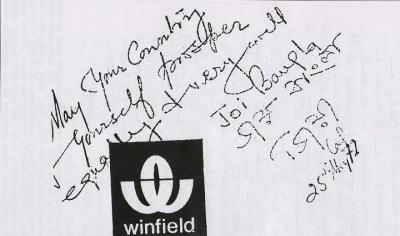 May your Country
& yourself prosper
equally & very well
Joi Bangla
জয় বাংলা
25th May 72
winfield